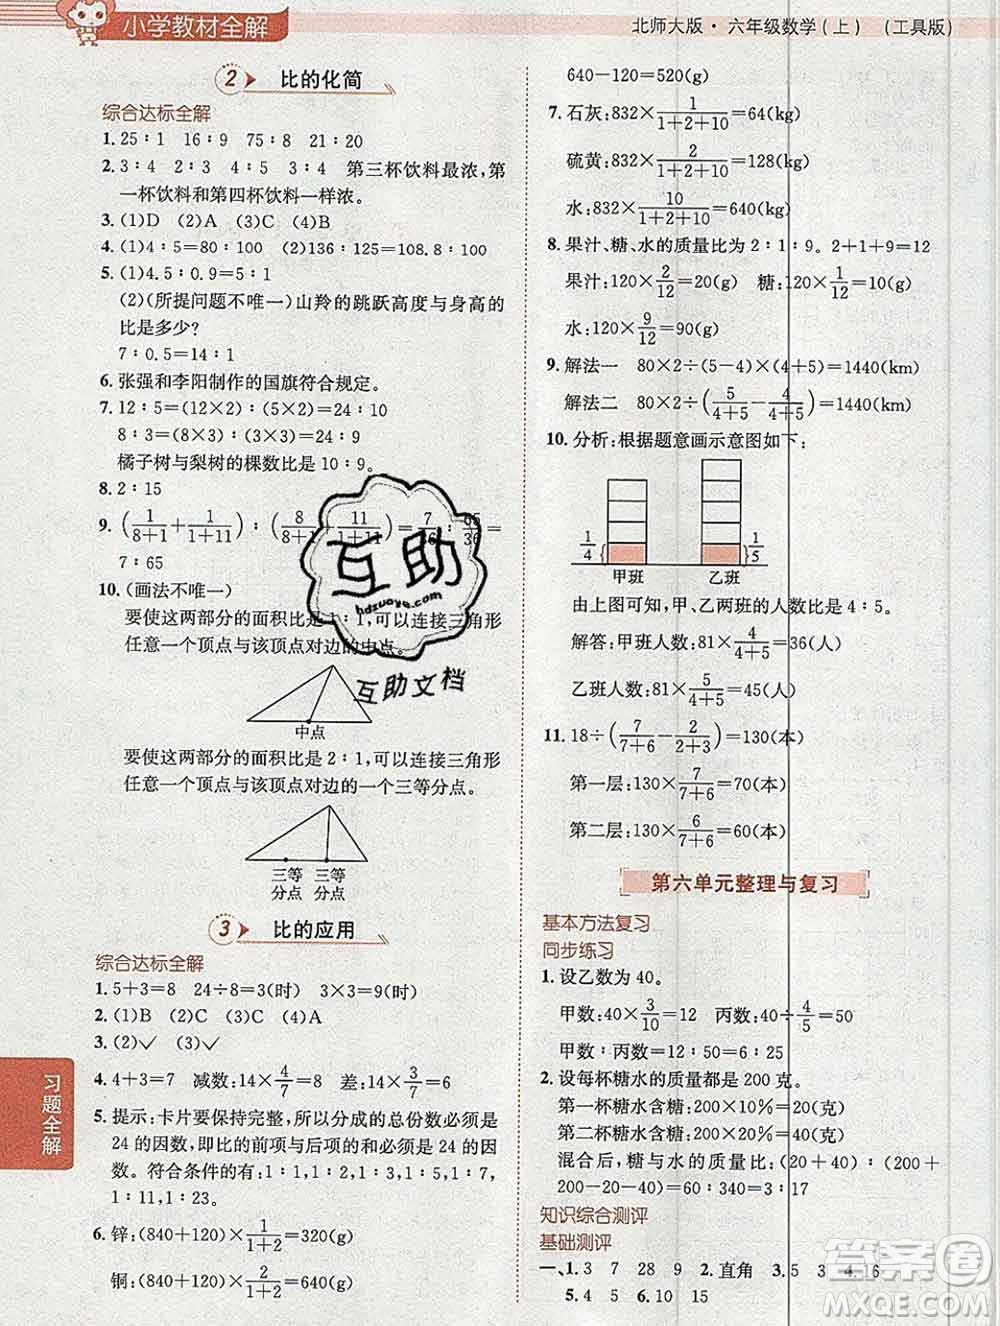 小学教材全解
北师大版·六年级数学(上) (工具版)
2 比的化简
综合达标全解
1. 25∶1 16∶9 75∶8 21∶20
2. 3∶4 2∶3 4∶5 3∶4 第三杯饮料最浓,第
一杯饮料和第四杯饮料一样浓。
3. (1)D (2)A (3)C (4)B
4. (1)4∶5=80∶100 (2)136∶125=108.8∶100
5. (1)4.5∶0.9=5∶1
(2)(所提问题不唯一)山羚的跳跃高度与身高的
比是多少?
7∶0.5=14∶1
6. 张强和李阳制作的国旗符合规定。
7. 12∶5=(12×2)∶(5×2)=24∶10
8∶3=(8×3)∶(3×3)=24∶9
橘子树与梨树的棵数比是10∶9。
8. 2∶15
9. (1/(8+1)+1/(1+11))∶(8/(8+1)+11/(1+11))=7/36∶65/36=
7∶65
10. (画法不唯一)
要使这两部分的面积比是1∶1,可以连接三角形
任意一个顶点与该顶点对边的中点。
中点
要使这两部分的面积比是2∶1,可以连接三角形
任意一个顶点与该顶点对边的一个三等分点。
三等分点 三等分点
3 比的应用
综合达标全解
1. 5+3=8 24÷8=3(时) 3×3=9(时)
2. (1)B (2)C (3)A
3. (2)✓ (3)✓
4. 4+3=7 减数:14×4/7=8 差:14×3/7=6
5. 提示:卡片要保持完整,所以分成的总份数必须是
24的因数,即比的前项与后项的和必须是24的因
数。符合条件的有:1∶1,1∶2,1∶3,1∶5,1∶7,
1∶11,1∶23。
6. 锌:(840+120)×1/(1+2)=320(g)
铜:(840+120)×2/(1+2)=640(g)
640-120=520(g)
7. 石灰:832×1/(1+2+10)=64(kg)
硫黄:832×2/(1+2+10)=128(kg)
水:832×10/(1+2+10)=640(kg)
8. 果汁、糖、水的质量比为2∶1∶9。2+1+9=12
果汁:120×2/12=20(g) 糖:120×1/12=10(g)
水:120×9/12=90(g)
9. 解法一 80×2÷(5-4)×(4+5)=1440(km)
解法二 80×2÷(5/(4+5)-4/(4+5))=1440(km)
10. 分析:根据题意画示意图如下:
1/4 甲班 乙班 1/5
由上图可知,甲、乙两班的人数比是4∶5。
解答:甲班人数:81×4/(4+5)=36(人)
乙班人数:81×5/(4+5)=45(人)
11. 18÷(7/(7+6)-2/(2+3))=130(本)
第一层:130×7/(7+6)=70(本)
第二层:130×6/(7+6)=60(本)
第六单元整理与复习
基本方法复习
同步练习
1. 设乙数为40。
甲数:40×3/10=12 丙数:40÷4/5=50
甲数∶丙数=12∶50=6∶25
2. 设每杯糖水的质量都是200克。
第一杯糖水含糖:200×10%=20(克)
第二杯糖水含糖:200×20%=40(克)
混合后,糖与水的质量比:(20+40)∶(200+
200-20-40)=60∶340=3∶17
知识综合测评
基础测评
一、1. 3 7 28 9 2. 直角 3. 5 3 4. 16
5. 4 5 6. 10 15
习题全解
互助
hdzuoye.com
互助文档
答案圈
MXQE.COM